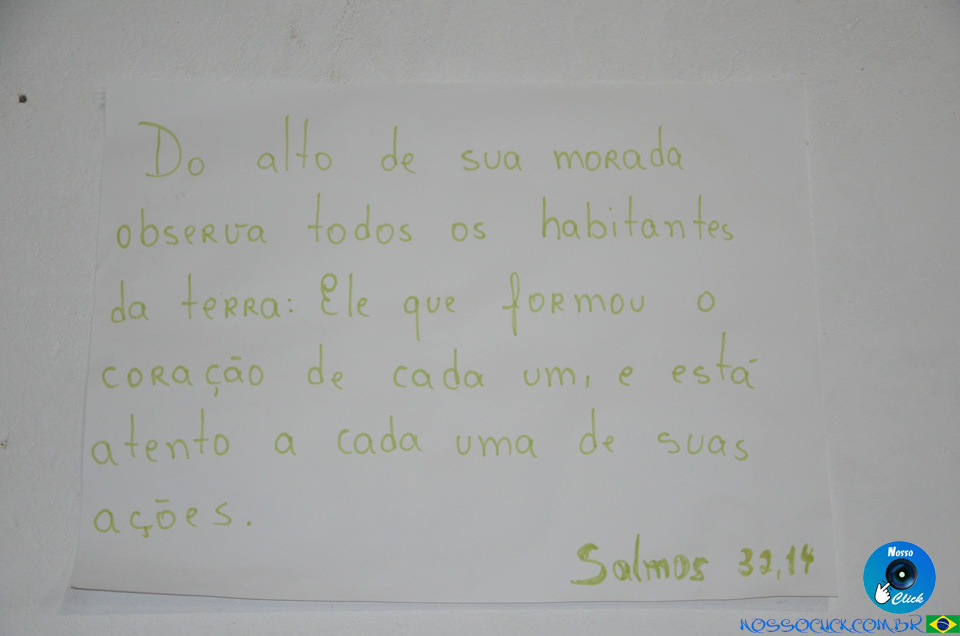 Do alto de sua morada
observa todos os habitantes
da terra: Ele que formou o
coração de cada um, e está
atento a cada uma de suas
ações.
Salmos 32,14
Nosso
Click
NOSSOCLICK.COM.BR